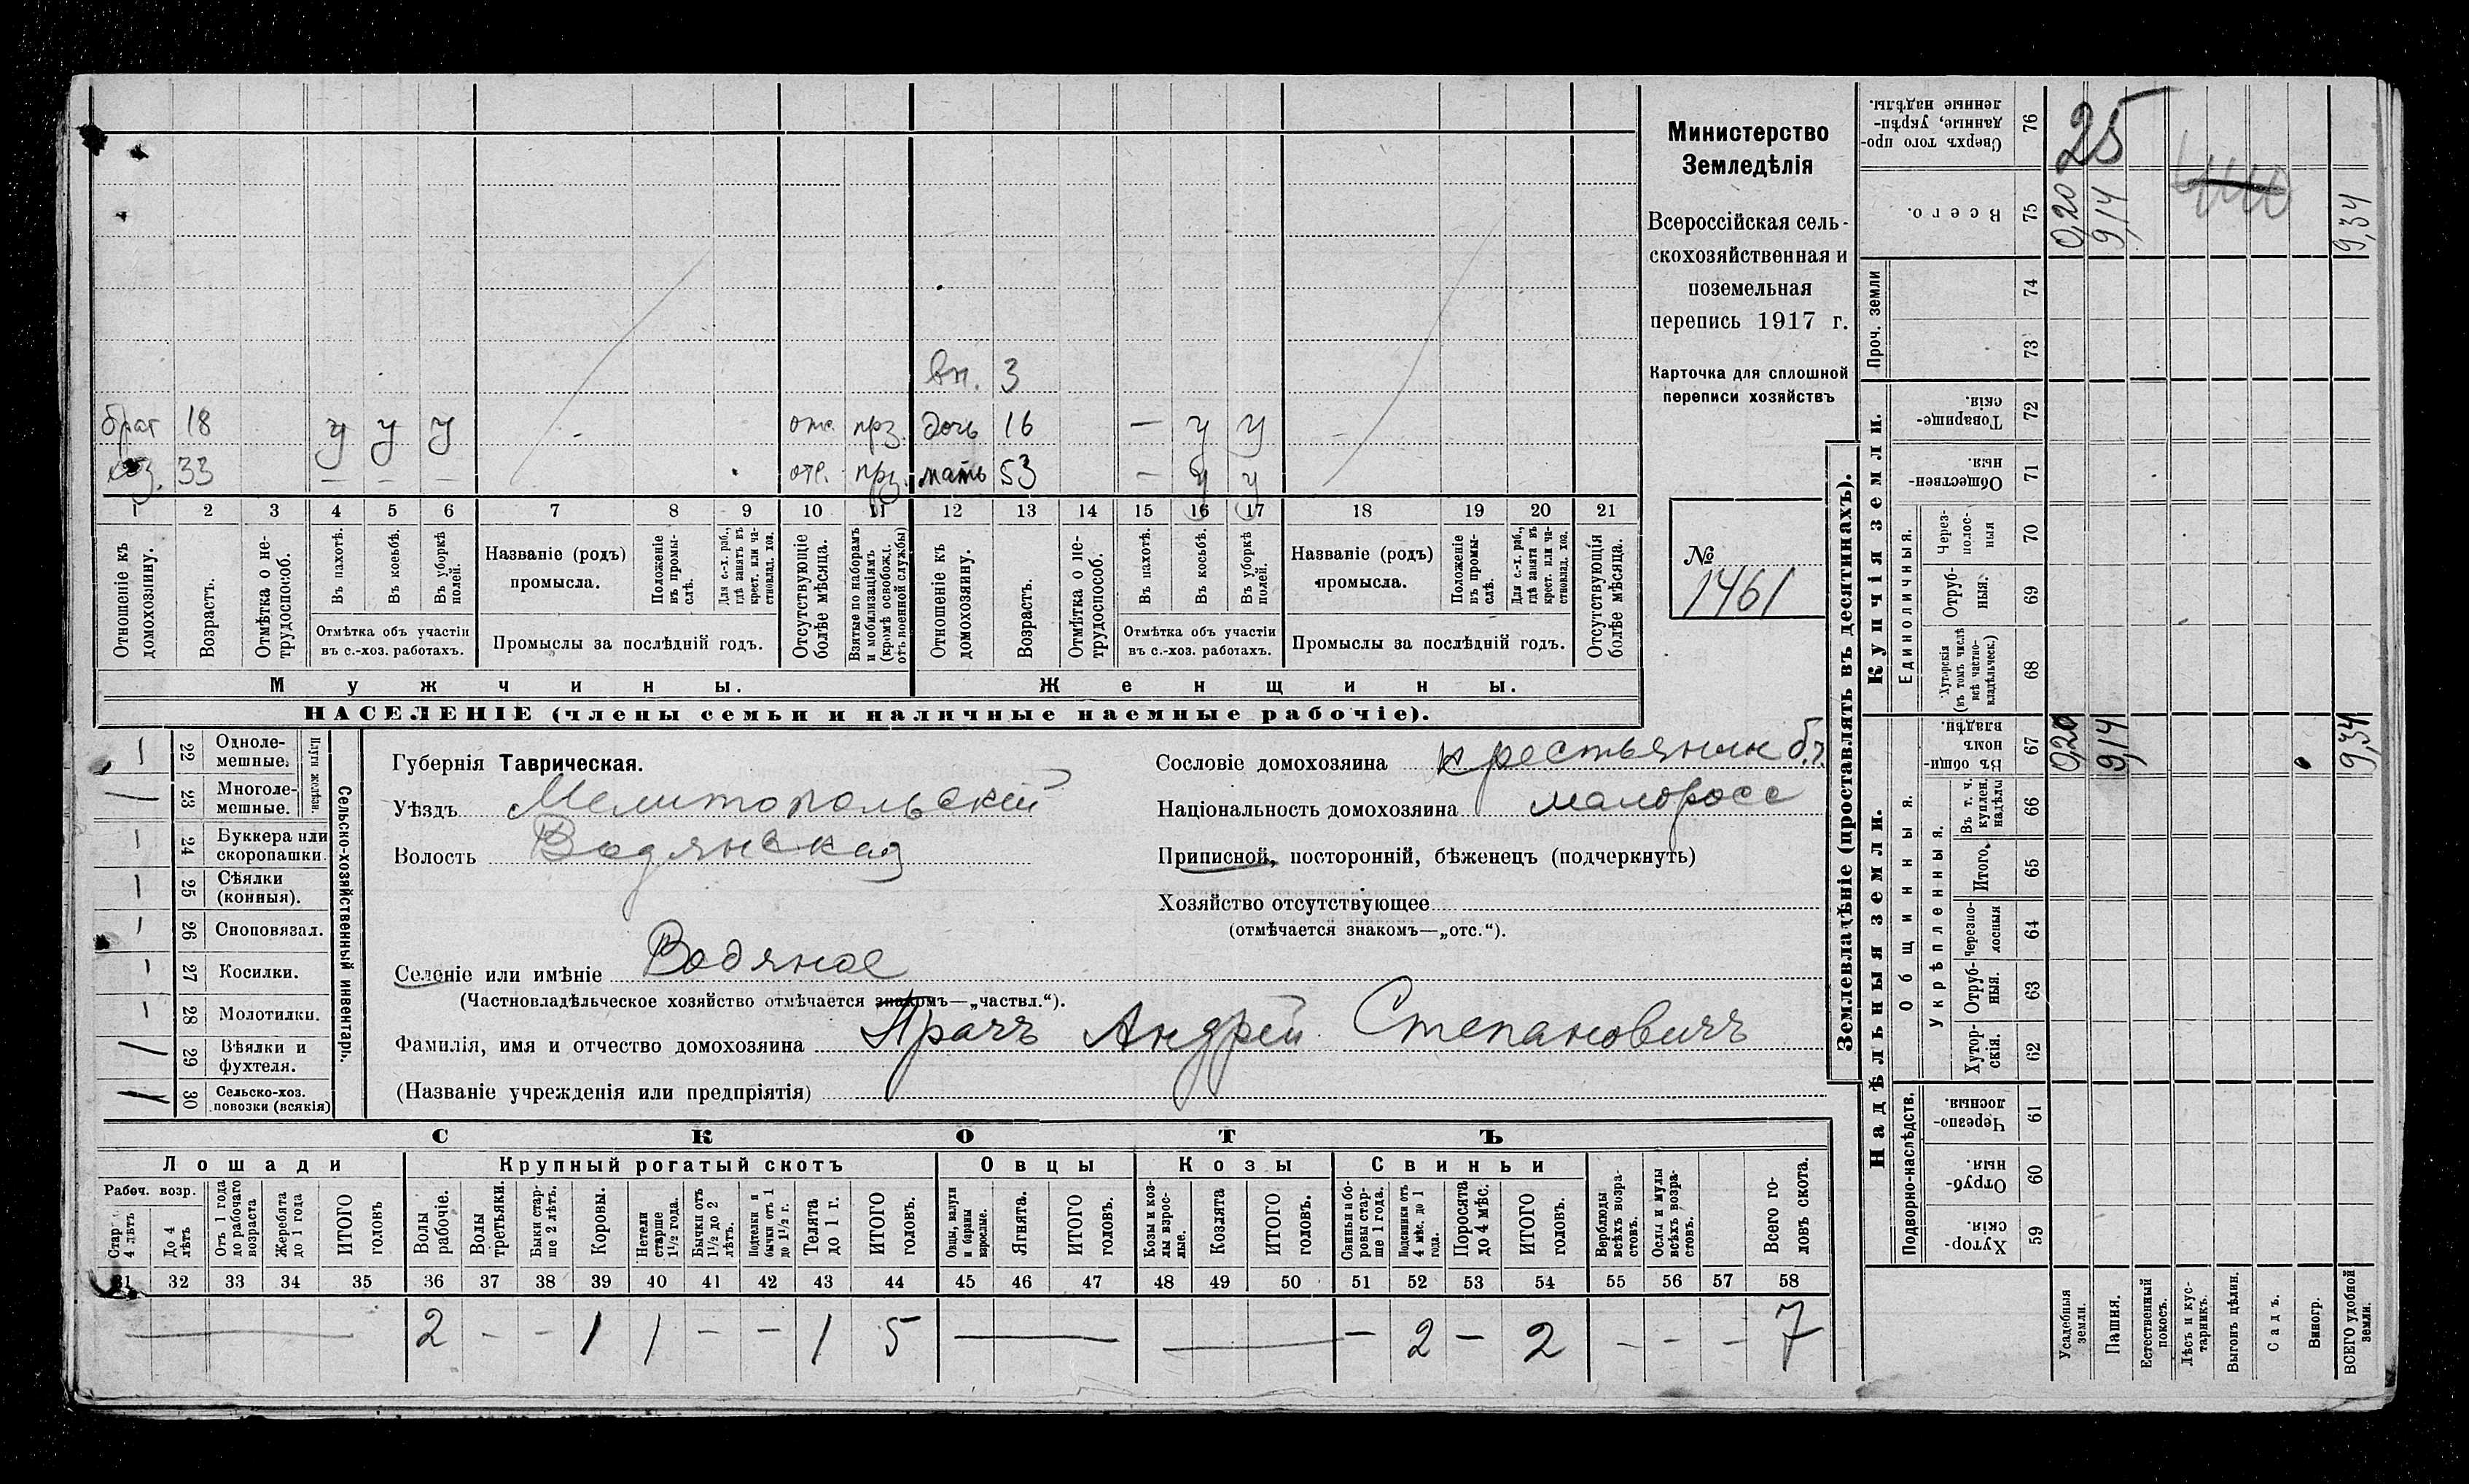 Министерство
Земледѣлія
Всероссійская сель-
скохозяйственная и
поземельная
перепись 1917 г.
Карточка для сплошной
переписи хозяйствъ
№
1461
вн. 3
брат 18 у у у - отс. прз. дочь 16 — у у -
хоз. 33 — — — отс. прз. мать 53 — у у
1 2 3 4 5 6 7 8 9 10 11 12 13 14 15 16 17 18 19 20 21
Отношеніе къ домохозяину.
Возрастъ.
Отмѣтка о не-трудоспособ.
Въ пахотѣ.
Въ косьбѣ.
Въ уборкѣ полей.
Отмѣтка объ участіи въ с.-хоз. работахъ.
Названіе (родъ) промысла.
Положеніе въ промы-слѣ.
Для с.-х. раб., гдѣ занятъ въ крест. или ча-стновлад. хоз.
Промыслы за послѣдній годъ.
Отсутствующіе болѣе мѣсяца.
Взятые по наборамъ и мобилизаціямъ (кромѣ освобожд. отъ военной службы)
Отношеніе къ домохозяину.
Возрастъ.
Отмѣтка о не-трудоспособ.
Въ пахотѣ.
Въ косьбѣ.
Въ уборкѣ полей.
Отмѣтка объ участіи въ с.-хоз. работахъ.
Названіе (родъ) промысла.
Положеніе въ промы-слѣ.
Для с.-х. раб., гдѣ занята въ крест. или ча-стновлад. хоз.
Промыслы за послѣдній годъ.
Отсутствующія болѣе мѣсяца.
Мужчины. Женщины.
НАСЕЛЕНІЕ (члены семьи и наличные наемные рабочіе).
Сельско-хозяйственный инвентарь.
Плуги желѣзн.
1 22 Одноле-мешные.
— 23 Многоле-мешные.
1 24 Буккера или скоропашки.
1 25 Сѣялки (конныя).
1 26 Сноповязал.
1 27 Косилки.
1 28 Молотилки.
1 29 Вѣялки и фухтеля.
1 30 Сельско-хоз. повозки (всякія)
Губернія Таврическая.
Уѣздъ Мелитопольскій
Волость Водянская
Селеніе или имѣніе Водяное
(Частновладѣльческое хозяйство отмѣчается знакомъ—„частвл.“).
Фамилія, имя и отчество домохозяина Прачъ Андрей Степановичъ
(Названіе учрежденія или предпріятія)
Сословіе домохозяина крестьянин б.г.
Національность домохозяина малоросс
Приписной, посторонній, бѣженецъ (подчеркнуть)
Хозяйство отсутствующее
(отмѣчается знакомъ—„отс.“).
СКОТЪ
Лошади Крупный рогатый скотъ Овцы Козы Свиньи
Рабоч. возр.
Стар 4 лѣтъ
До 4 лѣтъ
Отъ 1 года до рабочаго возраста
Жеребята до 1 года
ИТОГО головъ
Волы рабочіе.
Волы третьяки.
Быки стар-ше 2 лѣтъ.
Коровы.
Нетели старше 1½ года.
Бычки отъ 1½ до 2 лѣтъ.
Подтелки и бычки отъ 1 до 1½ г.
Телята до 1 г.
ИТОГО головъ.
Овцы, валухи и бараны взрослые.
Ягнята.
ИТОГО головъ.
Козы и коз-лы взрос-лые.
Козлята
ИТОГО головъ.
Свиньи и бо-ровы стар-ше 1 года.
Подсвинки отъ 4 мѣс. до 1 года.
Поросята до 4 мѣс.
ИТОГО головъ.
Верблюды всѣхъ возра-стовъ.
Ослы и мулы всѣхъ возра-стовъ.
Всего го-ловъ скота.
31 32 33 34 35 36 37 38 39 40 41 42 43 44 45 46 47 48 49 50 51 52 53 54 55 56 57 58
— 2 - - 1 1 - - 1 5 — — — 2 — 2 - - - 7
Землевладѣніе (проставлять въ десятинахъ).
Надѣльныя земли. Купчія земли. Проч. земли
Подворно-наслѣдств. Общинныя. Укрѣпленныя. Единоличныя.
59 Хутор-скія
60 Отруб-ныя.
61 Черезпо-лосныя.
62 Хутор-скія.
63 Отруб-ныя.
64 Черезпо-лосныя
65 Итого.
66 Въ т. ч. куплен. надѣлы
67 Въ общи-номъ владѣн.
68 Хуторскія (въ томъ числѣ всѣ частно-владѣльческ.)
69 Отруб-ныя.
70 Через-полос-ныя
71 Обществен-ныя.
72 Товарище-скія.
73
74
75 Всего.
76 Сверхъ того про-данные, укрѣп-ленные надѣлы.
25
Усадебныя земли. 0,20 0,20
Пашня. 9,14 9,14
Естественный покосъ.
Лѣсъ и кус-тарникъ.
Выгонъ цѣлин.
Садъ.
Виногр.
ВСЕГО удобной земли. 9,34 9,34